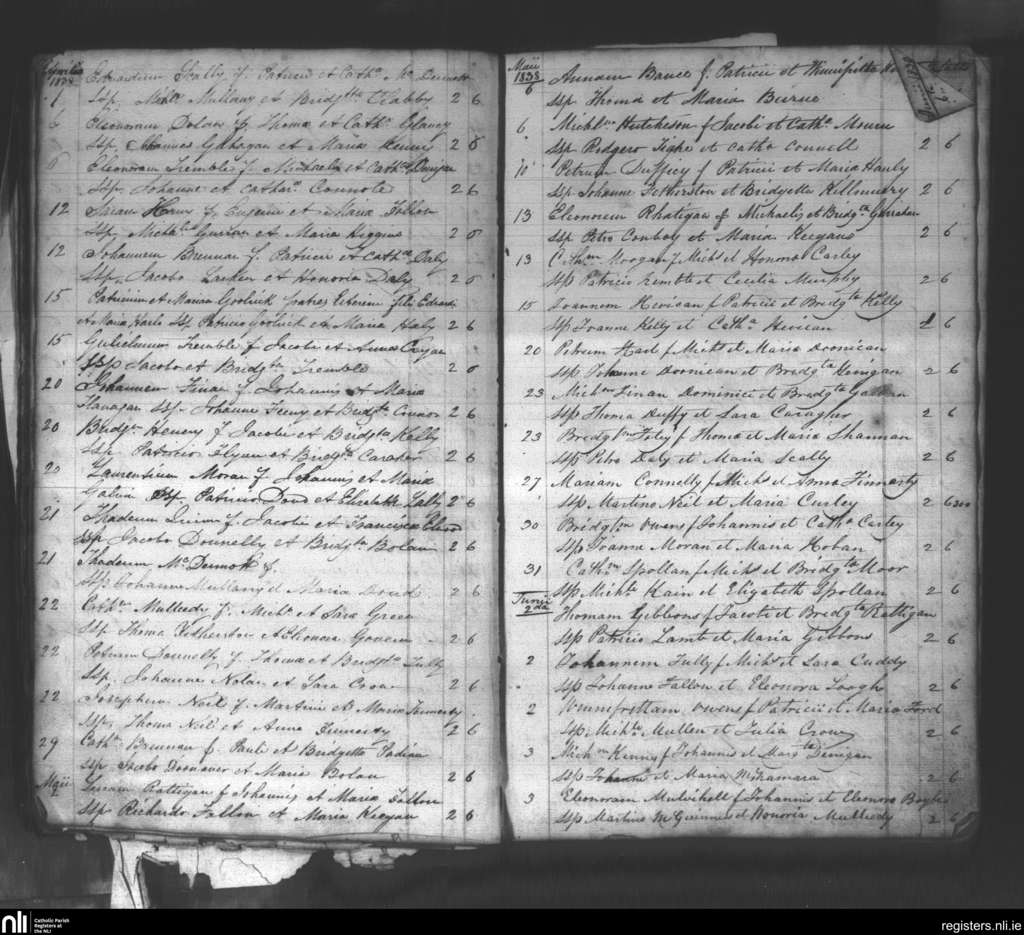 Aprilis
1838
Eduardum Scally f. Patricii et Cath. McDermott
1 Ssp. Mich. Mullany et Bridgtta Clabby 2 6
6 Eleonoram Dolan f. Thoma et Cath. Glancy
Ssp. Johannes Gahagan et Maria Kenny 2 6
6 Eleonoram Tremble f. Michaelis et Cath. Denigan
Ssp. Johanne et Cathar. Connole 2 6
12 Saram f. Eugenii et Maria Fallon
Ssp. Michl. et Maria Higgins 2 6
12 Johannem Brennan f. Patricii et Cathn. Daly
Ssp. Jacobo Larken et Honoria Daly 2 6
15 Patricium et Mariam Goolrick f
et Maria Ssp. Patricio Goolrick et Maria 2 6
15 Gulielmum Tremble f. Jacobi et Anna Cregan
Ssp Jacobo et Bridgta Tremble 2 6
20 Johannem Finan f. Johannis et Maria
Flanagan Ssp. Johanne Feeny et Bridgta Connor 2 6
20 Bridgtm Henery f. Jacobi et Bridgta Kelly
Ssp. Patricio Flynn et Bridgta 2 6
20 Laurentium Moran f. Johannis et Maria
Galvin Ssp. Patricio Dowd et Elizabeth 2 6
21 Thadeum Quinn f. Jacobi et Francisca
Ssp Jacobo Donnelly et Bridgta Bolan 2 6
21 Thadeum McDermott f.
Ssp. Johanne Mullany et Maria Dowd 2 6
22 Cathn. Mulledy f. Michl. et Sara Green
Ssp. Thoma et Elionora 2 6
22 Petrum Donnelly f. Thoma et Bridgta Tully
Ssp. Johanne Nolan et Sara Crow 2 6
22 Josephum Neil f. Martini et Maria Finnerty
Ssp. Thoma Neil et Anna Finnerty 2 6
29 Cathn. Brennan f. Pauli et Bridgetta Hadian
Ssp Jacobo et Maria Bolan 2 6
Maii Saram Rattigan f Johannis et Maria Fallon
Ssp. Richardo Fallon et Maria Keegan 2 6
Maii
1838
Annam f. Patricii et Winnifritta
6 Ssp. Thoma et Maria Beirne
6 Michlm. Hutcheson f Jacobi et Catha Mourn
Ssp Rodgero et Catha Connell 2 6
10 Petrum Dufficy f Patricii et Maria Hanly
Ssp Johanne et Bridgetta 2 6
13 Eleonoram Rhatigan f Michaelis et Bridgta
Ssp. Petro Conboy et Maria Keegans 2 6
13 Cathnm Morgan f Michs et Honora Carley
Ssp Patricio Tremble et Cecilia Murphy 2 6
15 Joannem Hevican f Patricii et Bridgta Kelly
Ssp Joanne Kelly et Catha Hevican 2 6
20 Petrum f Michs et Maria Dornican
Ssp Johanne Dornican et Bridgta 2 6
23 Michm Finan Dominici et Bridgta
Ssp Thoma Duffy et Sara Caragher 2 6
23 Bridgtm Foley f Thoma et Maria Shannan
Ssp Petro Daly et Maria Scally 2 6
27 Mariam Connelly f Michs et Anna Finnerty
Ssp Martino Neil et Maria Curley 2 6
30 Bridgtm Owens f Johannis et Catha Carley
Ssp Joanne Moran et Maria Hoban 2 6
31 Cathnm Spollan f Michs et Bridgtta Moor
Ssp Michle Kain et Elizabeth Spollan 2 6
Junii
2da Thomam Gibbons f Jacobi et Bridgta Rattigan
Ssp Patricio Lamb et Maria Gibbons 2 6
2 Johannem Tully f Michs et Sara Cuddy
Ssp Johanne Fallon et Eleonora Loogh 2 6
2 Winnifrittam Owens f Patricii et Maria Ford
Ssp. Michle Mullen et Julia Crowe 2 6
3 Michm Kenny f Johannis et Denigan
Ssp Johanne et Maria McNamara 2 6
3 Eleonoram Mulvihell f Johannis et Eleonora
Ssp Martino McGuinness et Honoria Mulledy 2 6
nli Catholic Parish
Registers at
the NLI
registers.nli.ie